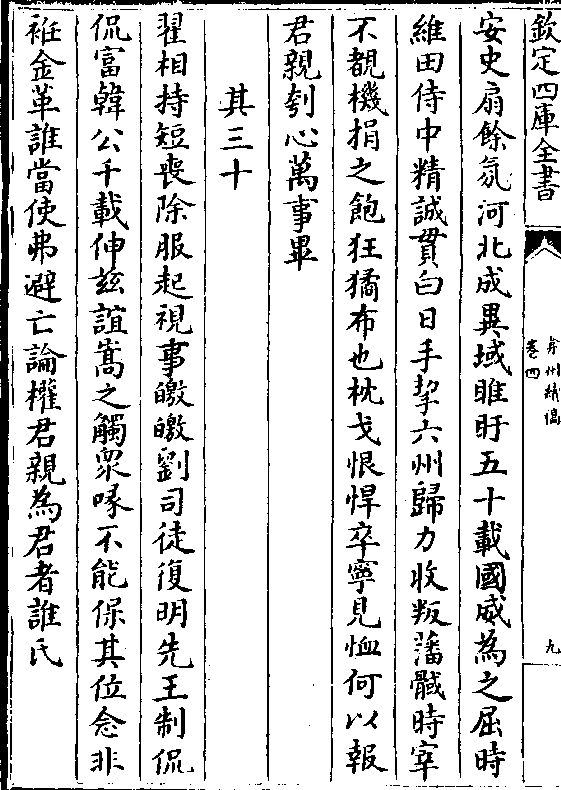 欽定四庫全書
弇州續稿
卷四
九
安史扇餘氛河北成異域睢盱五十載國威為之屈時
維田侍中精誠貫白日手挈六州歸力收叛藩馘時宰
不覩機捐之飽狂獝布也枕戈恨悍卒寧見恤何以報
君親刳心萬事畢
其三十
翟相持短喪除服起視事皦皦劉司徒復明先王制侃
侃富韓公千載伸兹誼嵩之觸衆喙不能保其位念非
袵金革誰當使弗避亡論權君親為君者誰氏